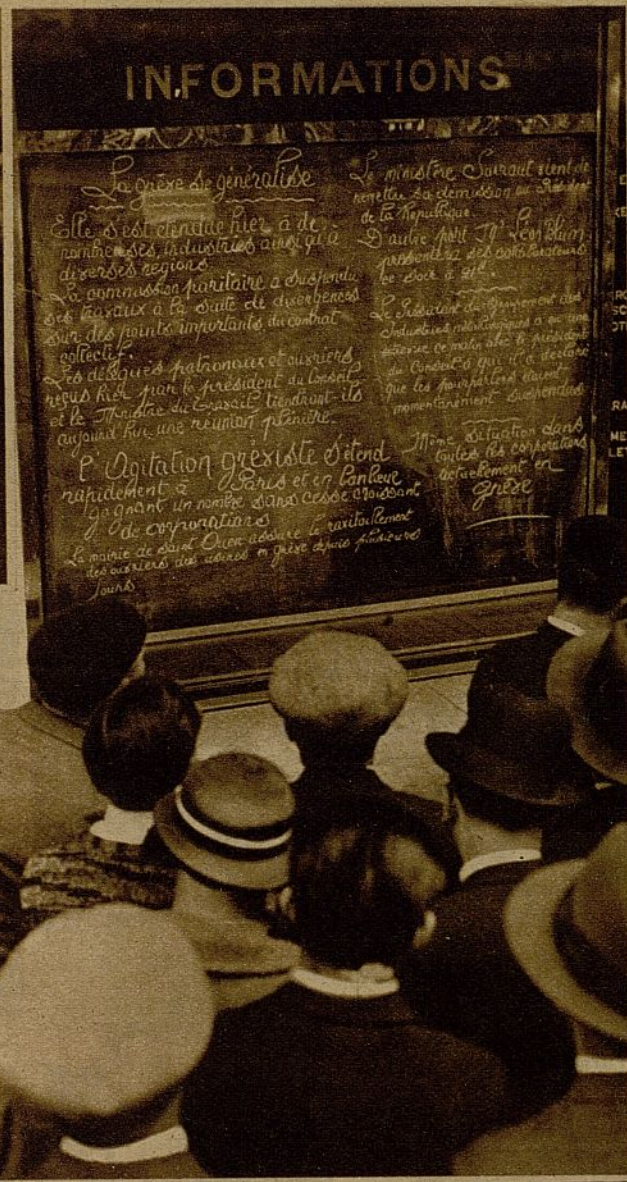 INFORMATIONS
La grève se généralise
Elle s'est étendue hier à de
nombreuses industries ainsi qu'à
diverses régions
La commission paritaire a suspendu
ses travaux à la suite de divergences
sur des points importants du contrat
collectif.
Les délégués patronaux et ouvriers
reçus hier par le président du Conseil
et le Ministre du Travail tiendront-ils
aujourd'hui une réunion plénière.
l'Agitation gréviste s'étend
rapidement à Paris et en banlieue
gagnant un nombre sans cesse croissant
de corporations
La mairie de Saint Ouen assure le ravitaillement
des ouvriers des usines en grève depuis plusieurs
jours
Le ministère Sarraut vient de
remettre sa démission au Président
de la République.
D'autre part Mr Léon Blum
présentera ses collaborateurs
ce soir à
Le Président du Groupement des
Industries métallurgiques a eu une
ce matin avec le président
du Conseil à qui il a déclaré
que les pourparlers étaient
momentanément suspendus
Même situation dans
toutes les corporations
actuellement en
Grève